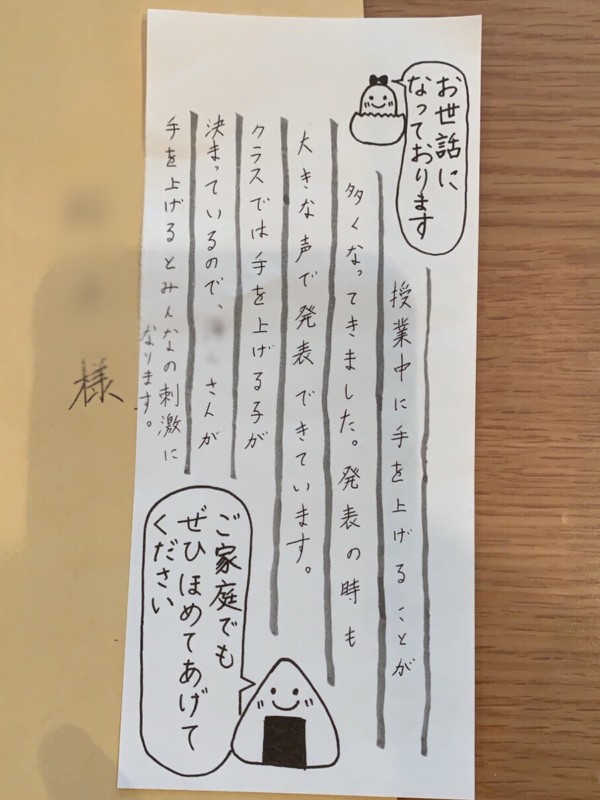 お世話に
なっております
授業中に手を上げることが
多くなってきました。発表の時も
大きな声で発表できています。
クラスでは手を上げる子が
決まっているので、さんが
手を上げるとみんなの刺激に
なります。
ご家庭でも
ぜひほめてあげて
ください
様